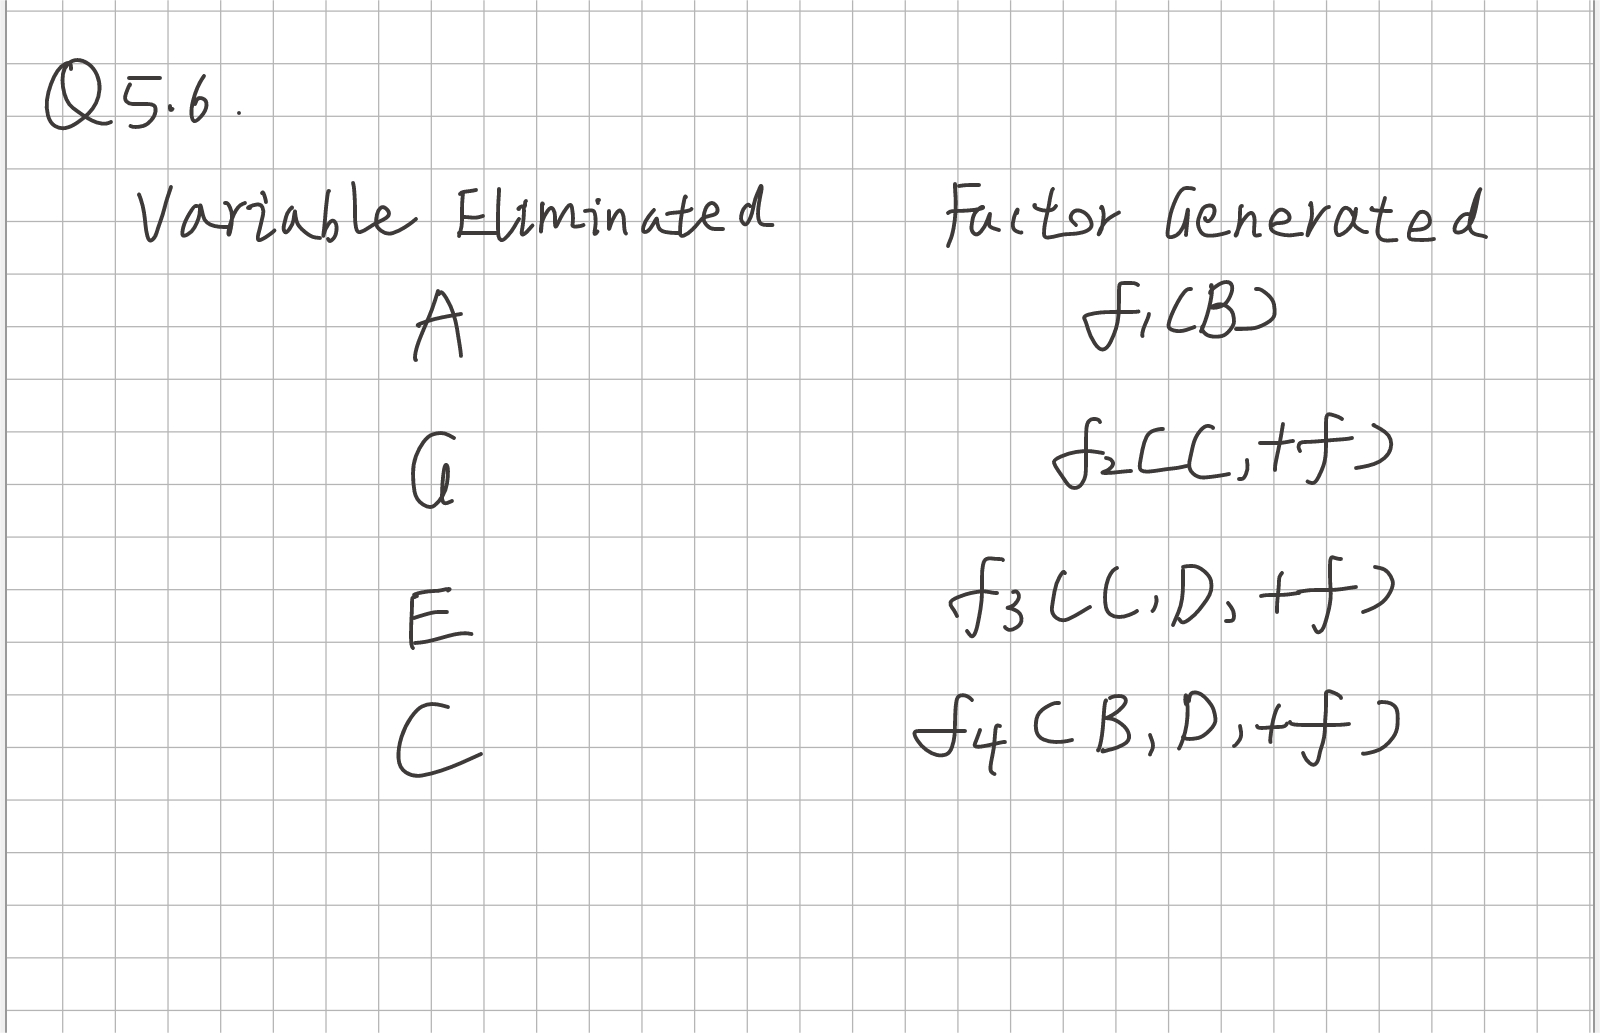 Q5.6.
Variable Eliminated Factor Generated
A f1(B)
G f2(C,+f)
E f3(C,D,+f)
C f4(B,D,+f)